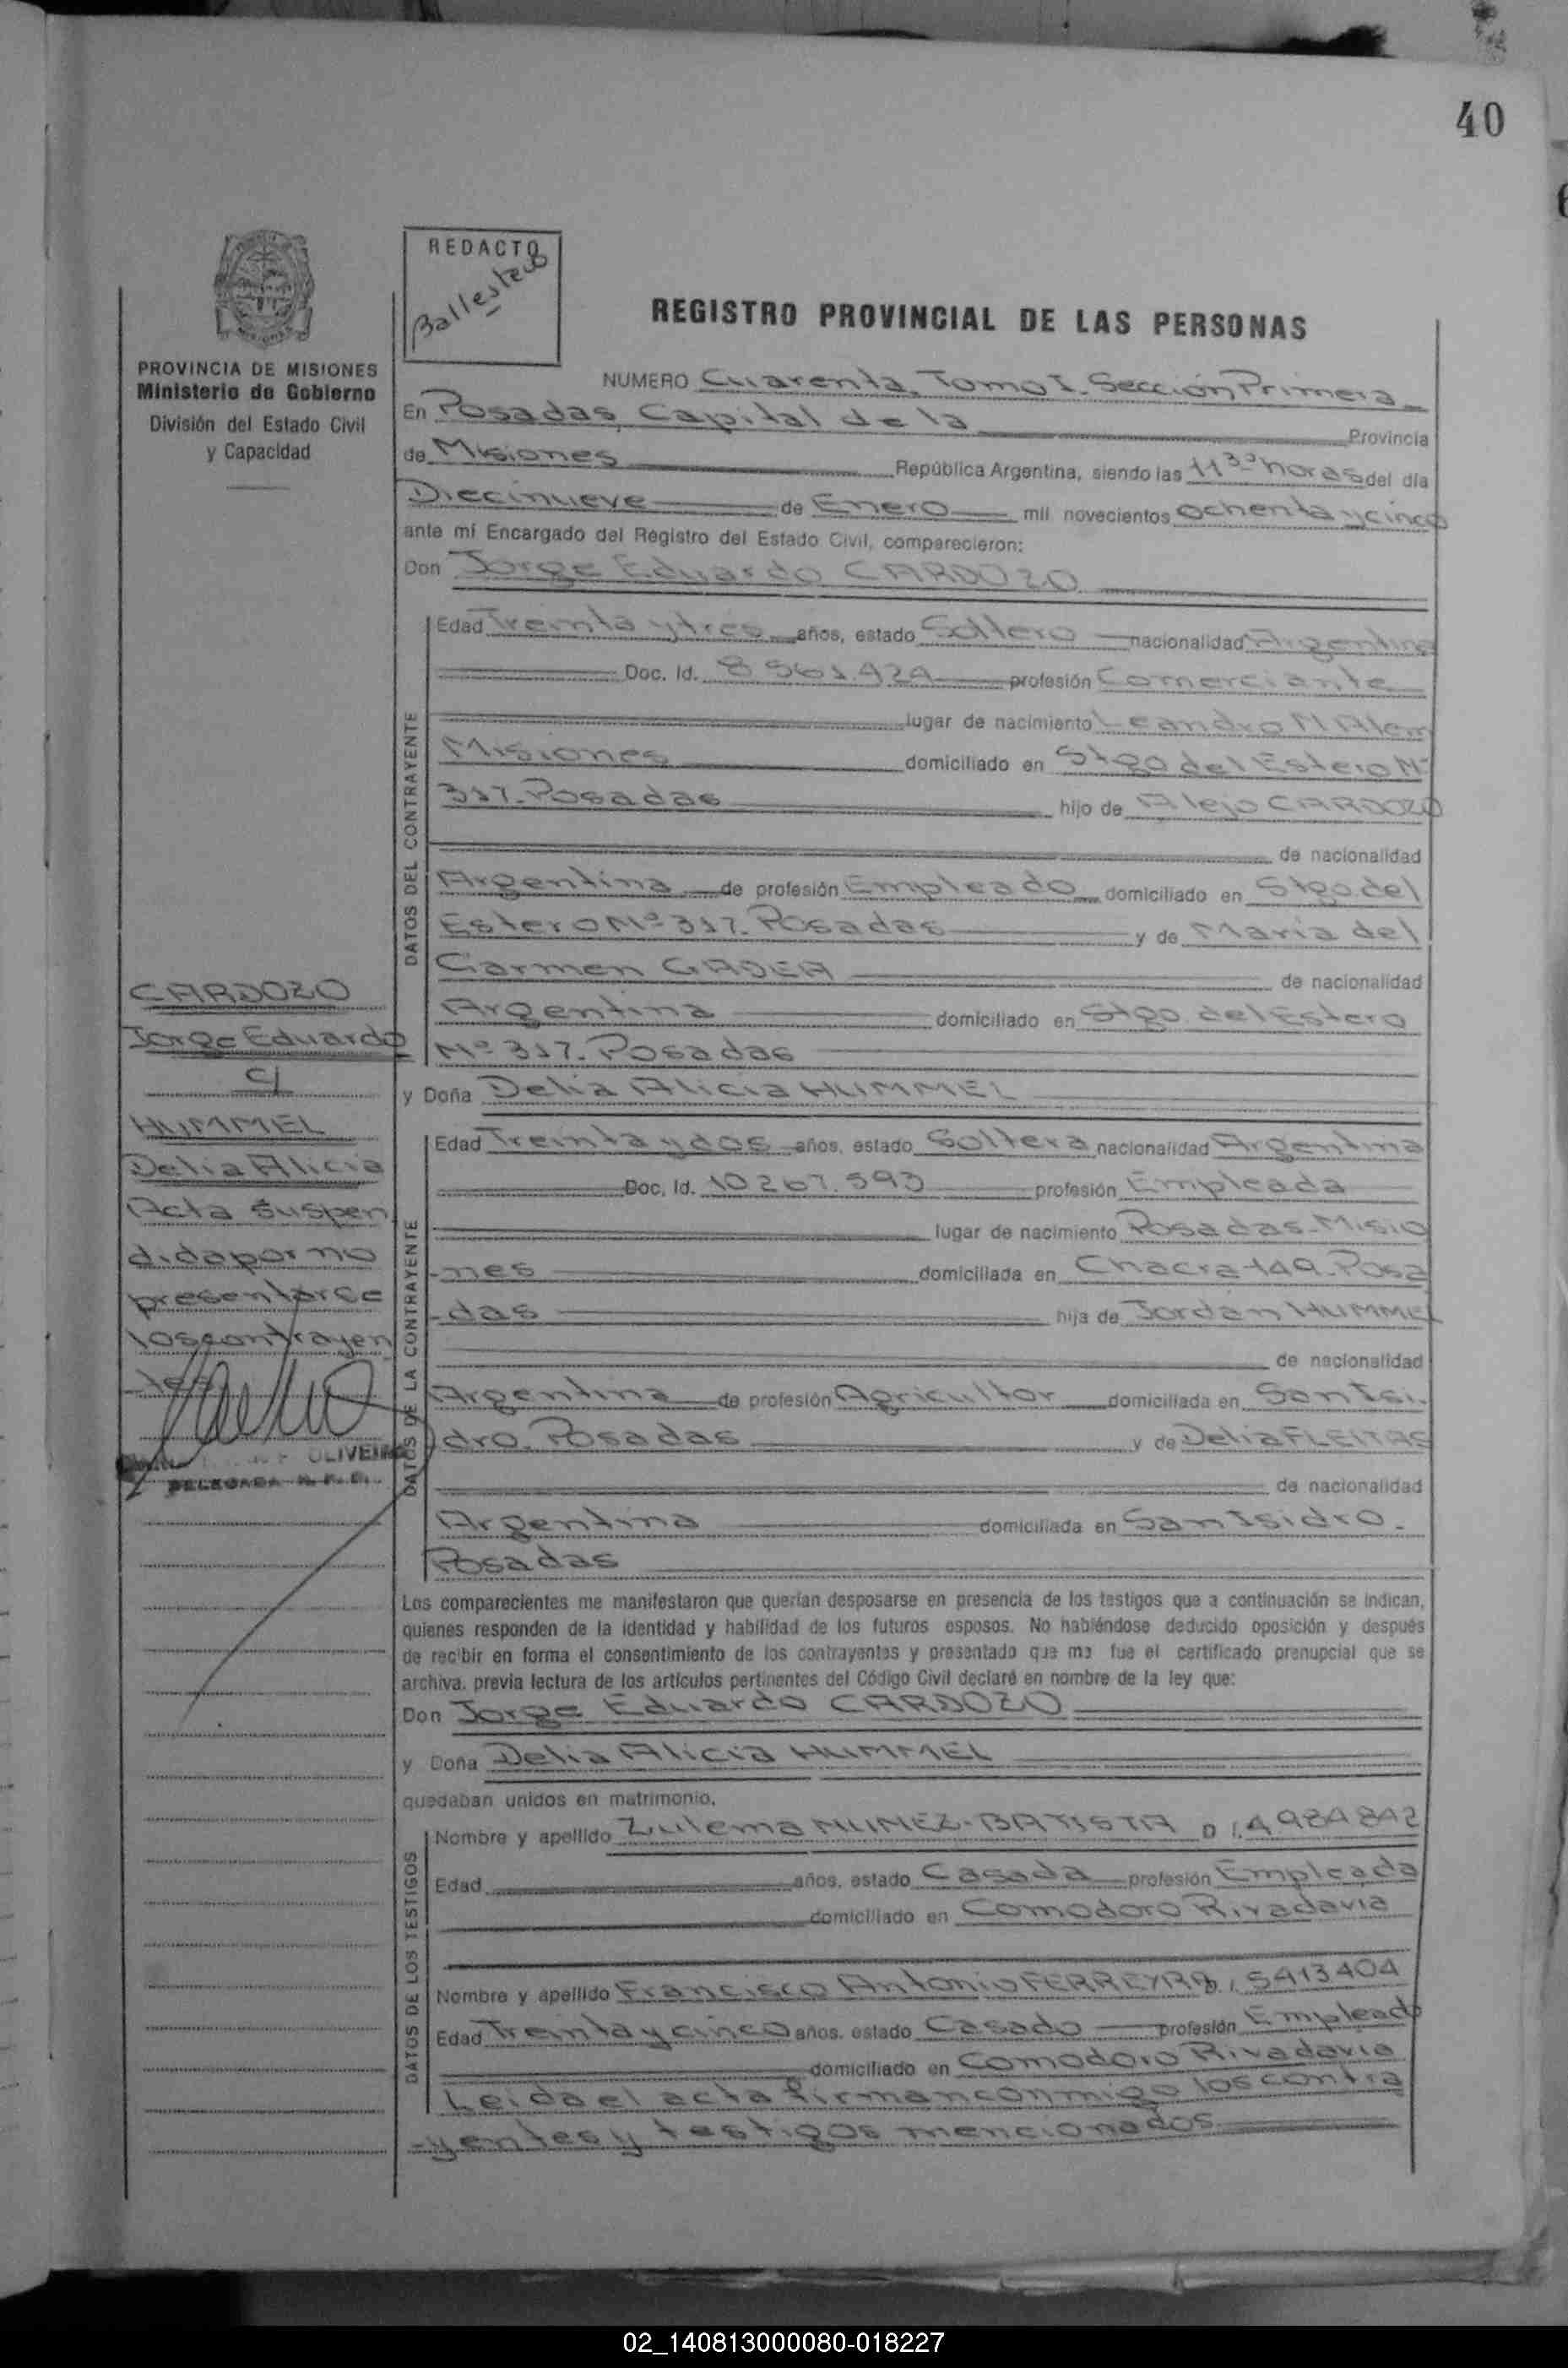 40
REDACTO
Ballesteros
REGISTRO PROVINCIAL DE LAS PERSONAS
PROVINCIA DE MISIONES
Ministerio de Gobierno
División del Estado Civil
y Capacidad
NUMERO Cuarenta, Tomo I. Sección Primera
En Posadas, Capital de la Provincia
de Misiones República Argentina, siendo las 11 30 horas del día
Diecinueve de Enero mil novecientos ochenta y cinco
ante mí Encargado del Registro del Estado Civil, comparecieron:
Don Jorge Eduardo CARDOZO
DATOS DEL CONTRAYENTE
Edad Treinta y tres años, estado Soltero nacionalidad Argentina
Doc. Id. 8.561.424 profesión Comerciante
lugar de nacimiento Leandro N Alem
Misiones domiciliado en Stgo del Estero Nº
317. Posadas hijo de Alejo CARDOZO
de nacionalidad
Argentina de profesión Empleado domiciliado en Stgo del
Estero Nº 317. Posadas y de Maria del
Carmen GADEA de nacionalidad
Argentina domiciliado en Stgo. del Estero
Nº 317. Posadas
y Doña Delia Alicia HUMMEL
CARDOZO
Jorge Eduardo
c/
HUMMEL
Delia Alicia
Acta suspen
dida por no
presentarce
los contrayen
tes
OLIVEIRA
DELEGADA R. P. P.
DATOS DE LA CONTRAYENTE
Edad Treinta y dos años, estado Soltera nacionalidad Argentina
Doc. Id. 10 267.593 profesión Empleada
lugar de nacimiento Posadas-Misio
-nes domiciliada en Chacra 149. Posa
-das hija de Jordan HUMMEL
de nacionalidad
Argentina de profesión Agricultor domiciliada en San Isi.
dro. Posadas y de Delia FLEITAS
de nacionalidad
Argentina domiciliada en San Isidro.
Posadas
Los comparecientes me manifestaron que querían desposarse en presencia de los testigos que a continuación se indican,
quienes responden de la identidad y habilidad de los futuros esposos. No habiéndose deducido oposición y después
de recibir en forma el consentimiento de los contrayentes y presentado que me fue el certificado prenupcial que se
archiva, previa lectura de los artículos pertinentes del Código Civil declaré en nombre de la ley que:
Don Jorge Eduardo CARDOZO
y Doña Delia Alicia HUMMEL
quedaban unidos en matrimonio.
DATOS DE LOS TESTIGOS
Nombre y apellido Zulema NUNEZ-BATISTA D I. 4984842
Edad años, estado Casada profesión Empleada
domiciliado en Comodoro Rivadavia
Nombre y apellido Francisco Antonio FERREYRA D. I. 5413404
Edad Treinta y cinco años, estado Casado profesión Empleado
domiciliado en Comodoro Rivadavia
Leida el acta firman conmigo los contra
-yentes y testigos mencionados
02_140813000080-018227